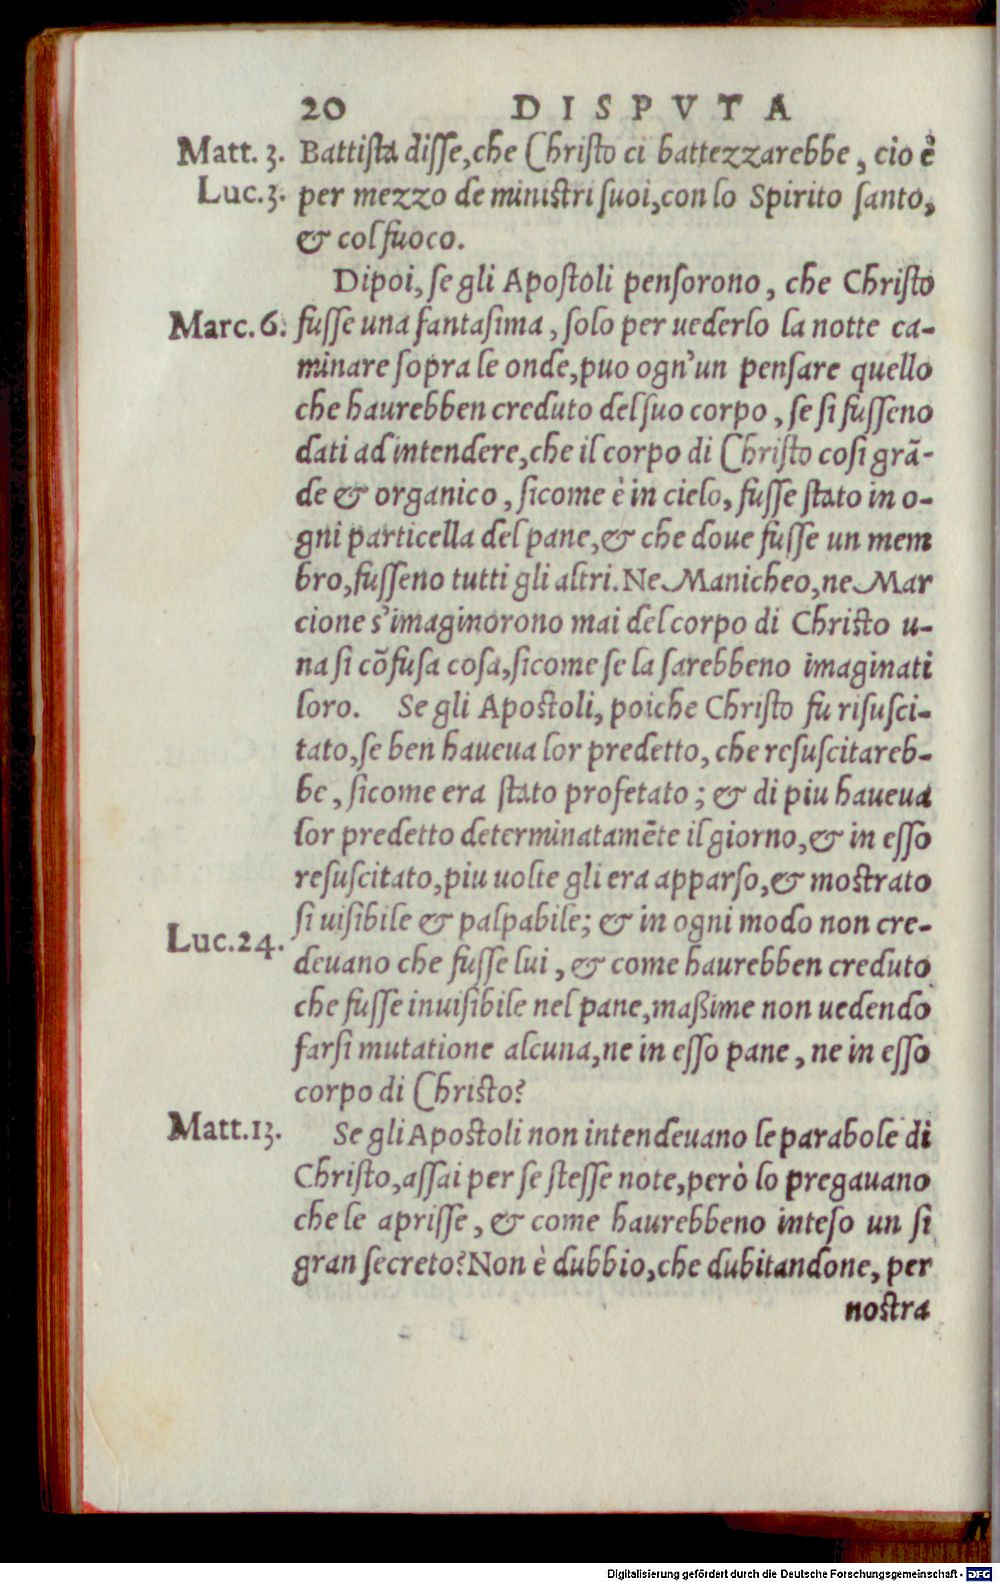 20 DISPVTA
Matt. 3. Battista disse, che Christo ci battezzarebbe, cio è
Luc. 3. per mezzo de ministri suoi, con lo Spirito santo,
& col fuoco.
Dipoi, se gli Apostoli pensorono, che Christo
Marc. 6. fusse una fantasima, solo per uederlo la notte ca-
minare sopra le onde, puo ogn'un pensare quello
che haurebben creduto del suo corpo, se si fusseno
dati ad intendere, che il corpo di Christo cosi grã-
de & organico, sicome è in cielo, fusse stato in o-
gni particella del pane, & che doue fusse un mem
bro, fusseno tutti gli altri. Ne Manicheo, ne Mar
cione s'imaginorono mai del corpo di Christo u-
na si cõfusa cosa, sicome se la sarebbeno imaginati
loro. Se gli Apostoli, poiche Christo fu risusci-
tato, se ben haueua lor predetto, che resuscitareb-
be, sicome era stato profetato; & di piu haueua
lor predetto determinatamẽte il giorno, & in esso
resuscitato, piu uolte gli era apparso, & mostrato
si uisibile & palpabile; & in ogni modo non cre-
Luc. 24. deuano che fusse lui, & come haurebben creduto
che fusse inuisibile nel pane, maßime non uedendo
farsi mutatione alcuna, ne in esso pane, ne in esso
corpo di Christo?
Matt. 13. Se gli Apostoli non intendeuano le parabole di
Christo, assai per se stesse note, però lo pregauano
che le aprisse, & come haurebbeno inteso un si
gran secreto? Non è dubbio, che dubitandone, per
nostra
Digitalisierung gefördert durch die Deutsche Forschungsgemeinschaft - DFG